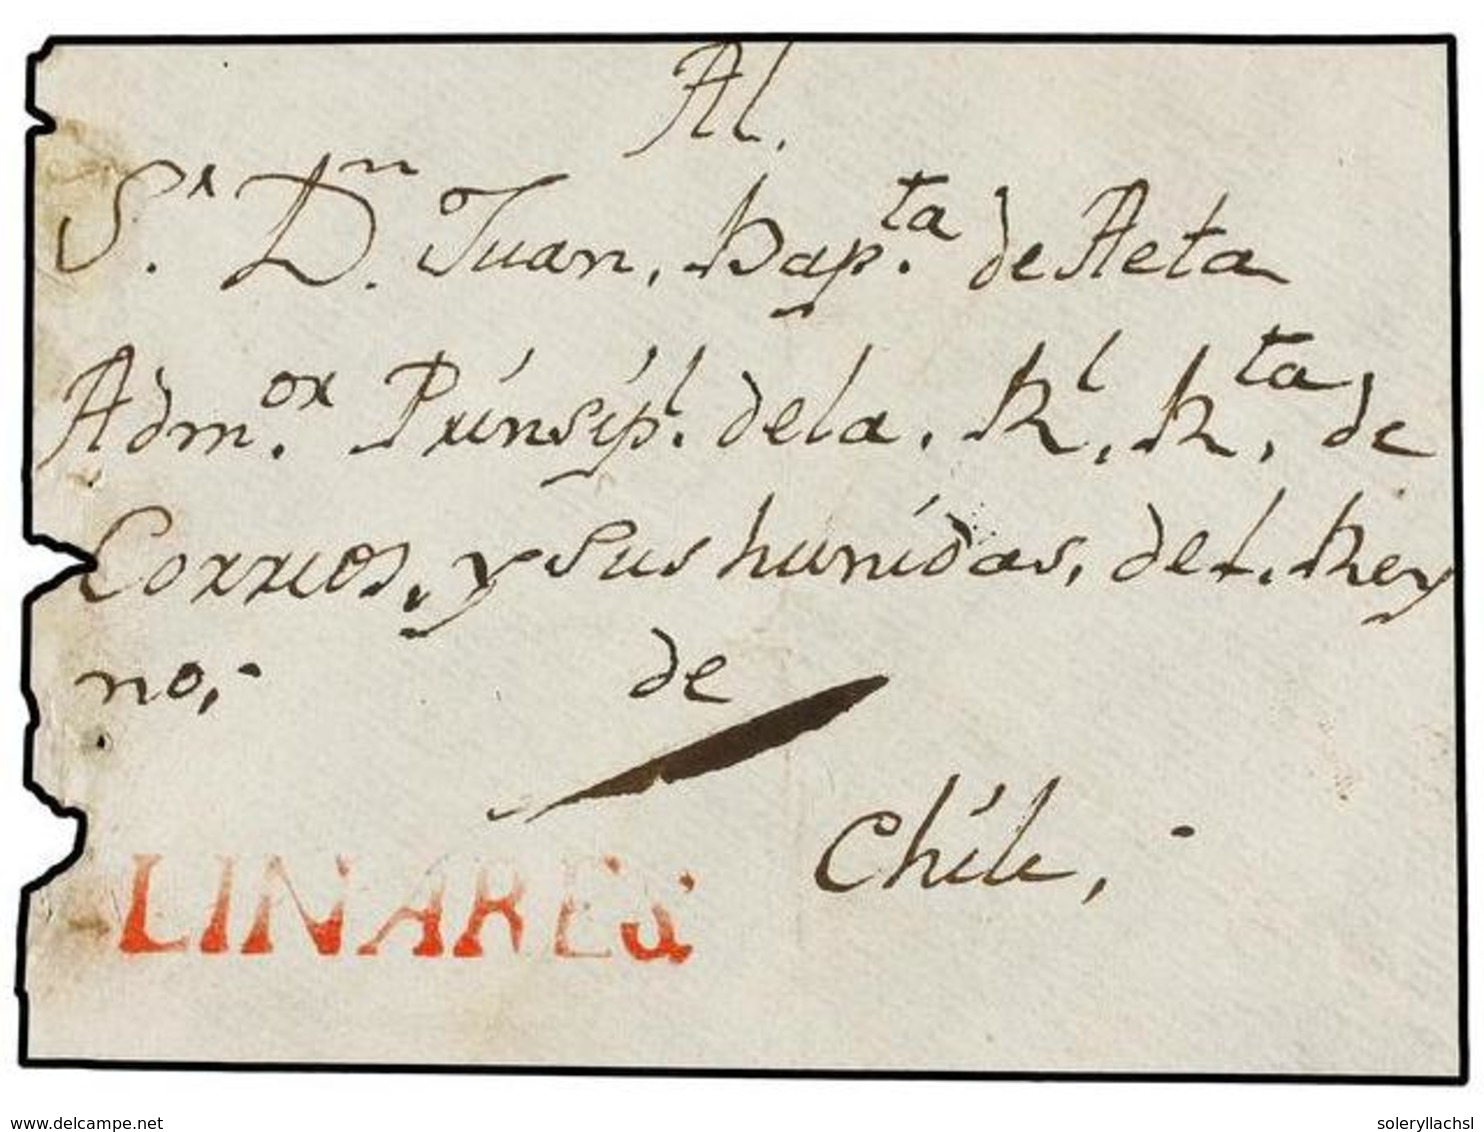 Al.
S.r D.n Juan, Bap.ta de Aeta
Adm.or Prinsip.l dela. R.l R.ta de
Correos, y sus hunidas, del. Rey
no,-
de
Chile,-
LINARES
www.delcampe.net
soleryllachsl